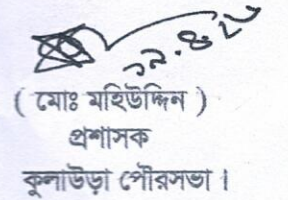 ( মোঃ মহিউদ্দিন )
প্রশাসক
কুলাউড়া পৌরসভা ।